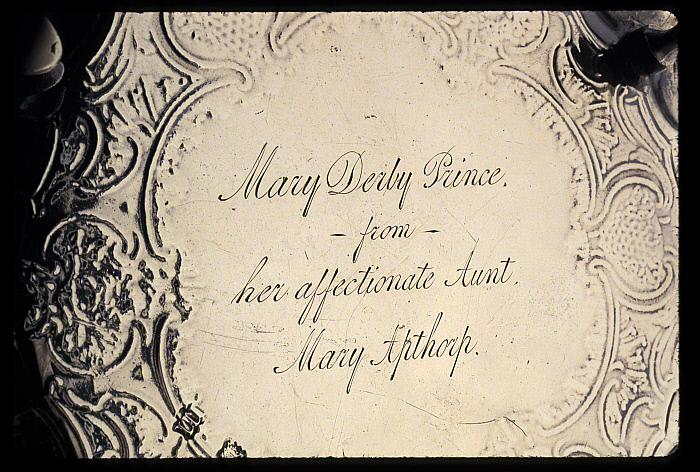 Mary Derby Prince.
– from –
her affectionate Aunt,
Mary Apthorp.